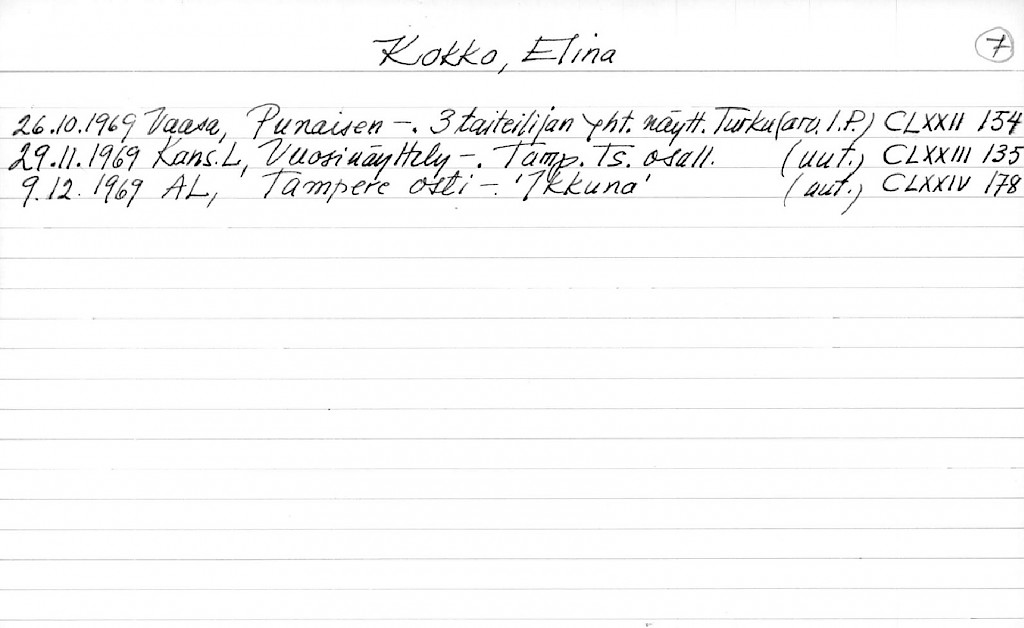 Kokko, Elina
7
26.10.1969 Vaasa, Punaisen -. 3 taiteilijan yht. näytt. Turku (arv. I.P.) CLXXII 154
29.11.1969 Kans.L, Vuosinäyttely -. Tamp. Ts. osall. (uut.) CLXXIII 135
9.12.1969 AL, Tampere osti -. 'Ikkuna' (uut.) CLXXIV 178